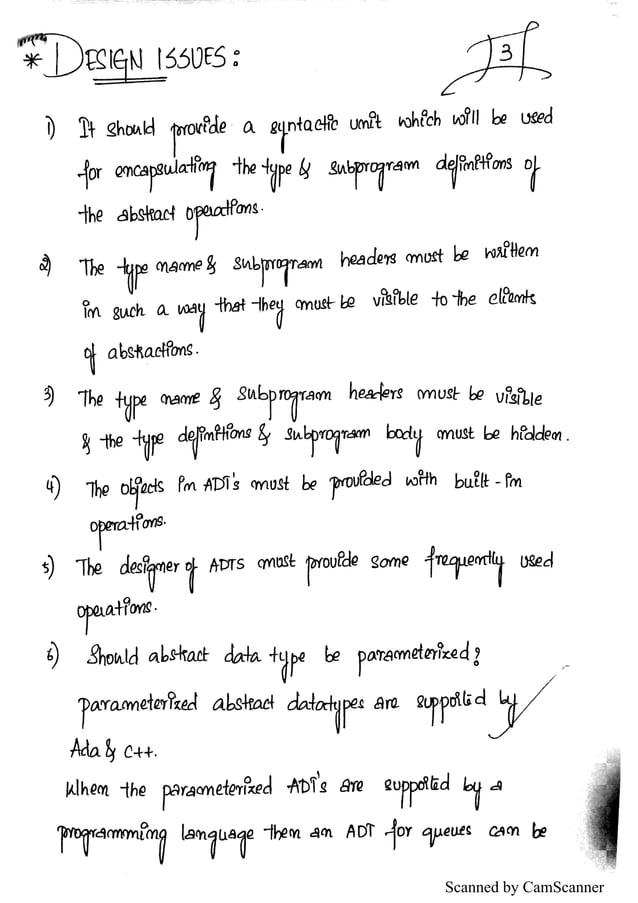 * DESIGN ISSUES:
3
1) It should provide a syntactic unit which will be used
for encapsulating the type & subprogram definitions of
the abstract operations.
2) The type name & subprogram headers must be written
in such a way that they must be visible to the clients
of abstractions.
3) The type name & subprogram headers must be visible
& the type definitions & subprogram body must be hidden.
4) The objects in ADT's must be provided with built-in
operations.
5) The designer of ADTS must provide some frequently used
operations.
6) Should abstract data type be parameterized?
parameterized abstract datatypes are supported by
Ada & C++.
When the parameterized ADT's are supported by a
programming language then an ADT for queues can be
Scanned by CamScanner